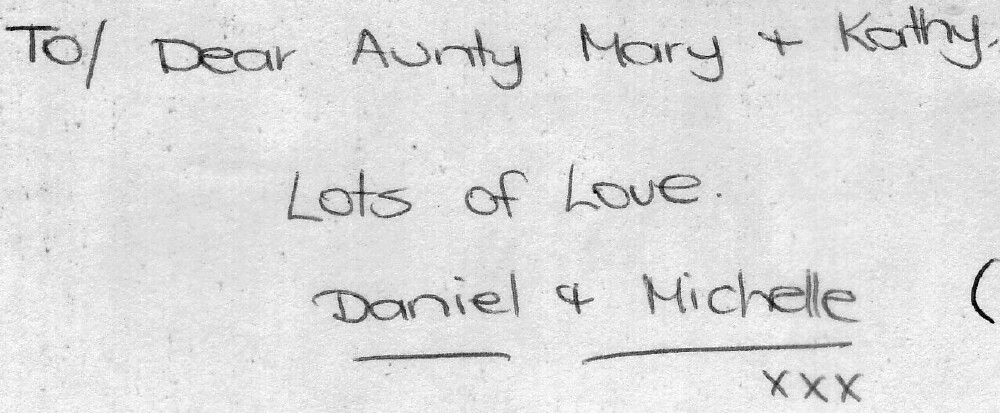 To/ Dear Aunty Mary + Kathy,
Lots of Love.
Daniel & Michelle (
xxx